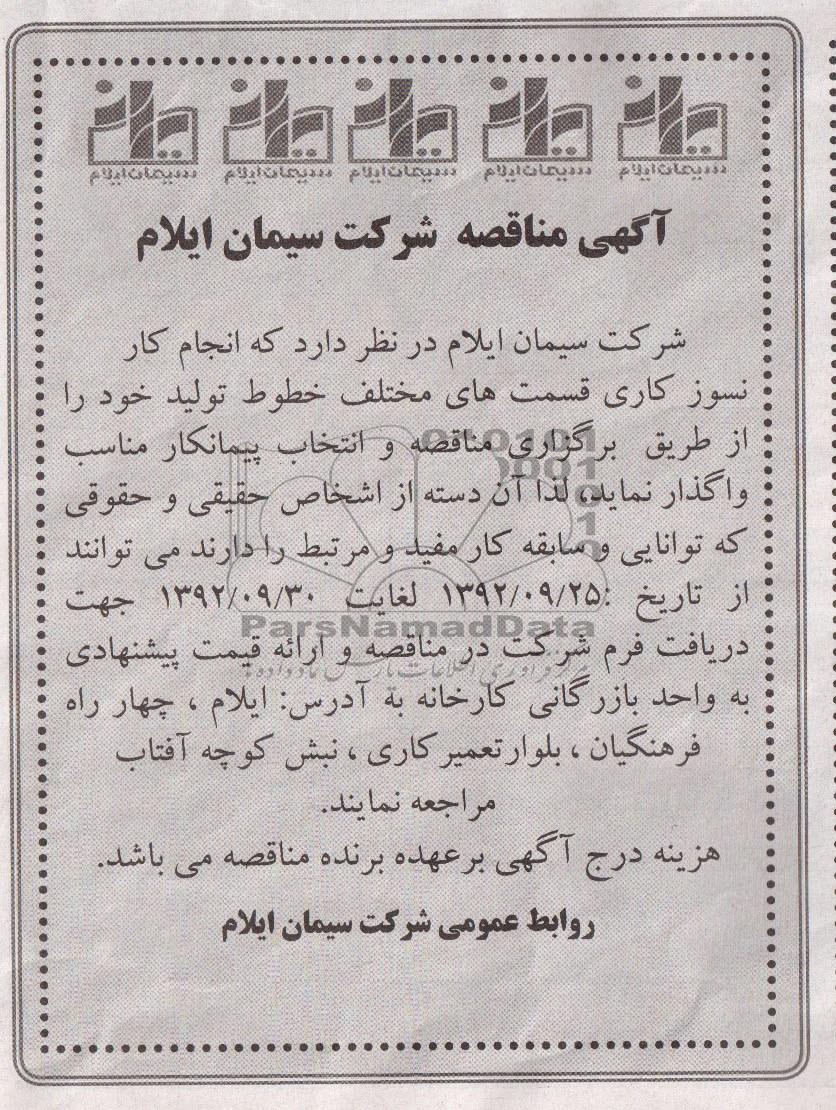 سیمان ایلام سیمان ایلام سیمان ایلام سیمان ایلام سیمان ایلام
آگهی مناقصه شرکت سیمان ایلام
شرکت سیمان ایلام در نظر دارد که انجام کار
نسوز کاری قسمت های مختلف خطوط تولید خود را
از طریق برگزاری مناقصه و انتخاب پیمانکار مناسب
واگذار نماید، لذا آن دسته از اشخاص حقیقی و حقوقی
که توانایی و سابقه کار مفید و مرتبط را دارند می توانند
از تاریخ :۱۳۹۲/۰۹/۲۵ لغایت ۱۳۹۲/۰۹/۳۰ جهت
ParsNamadData
دریافت فرم شرکت در مناقصه و ارائه قیمت پیشنهادی
به واحد بازرگانی کارخانه به آدرس: ایلام ، چهار راه
فرهنگیان ، بلوارتعمیرکاری ، نبش کوچه آفتاب
مراجعه نمایند.
هزینه درج آگهی برعهده برنده مناقصه می باشد.
روابط عمومی شرکت سیمان ایلام